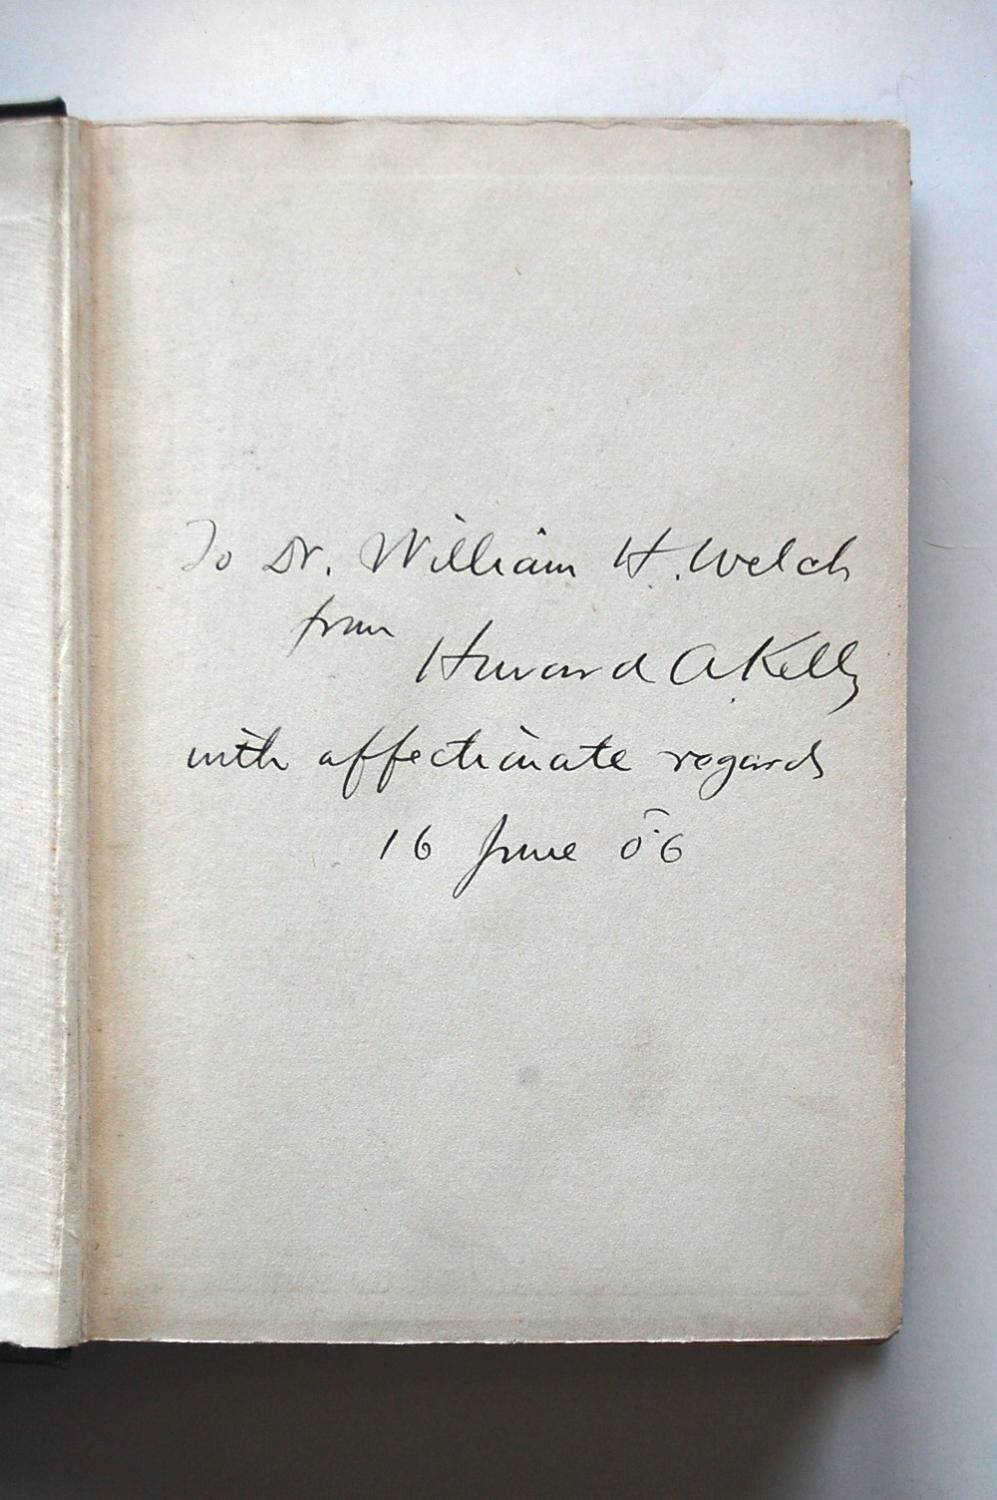 To Dr. William H. Welch
from
Howard A. Kelly
with affectionate regards
16 June 06